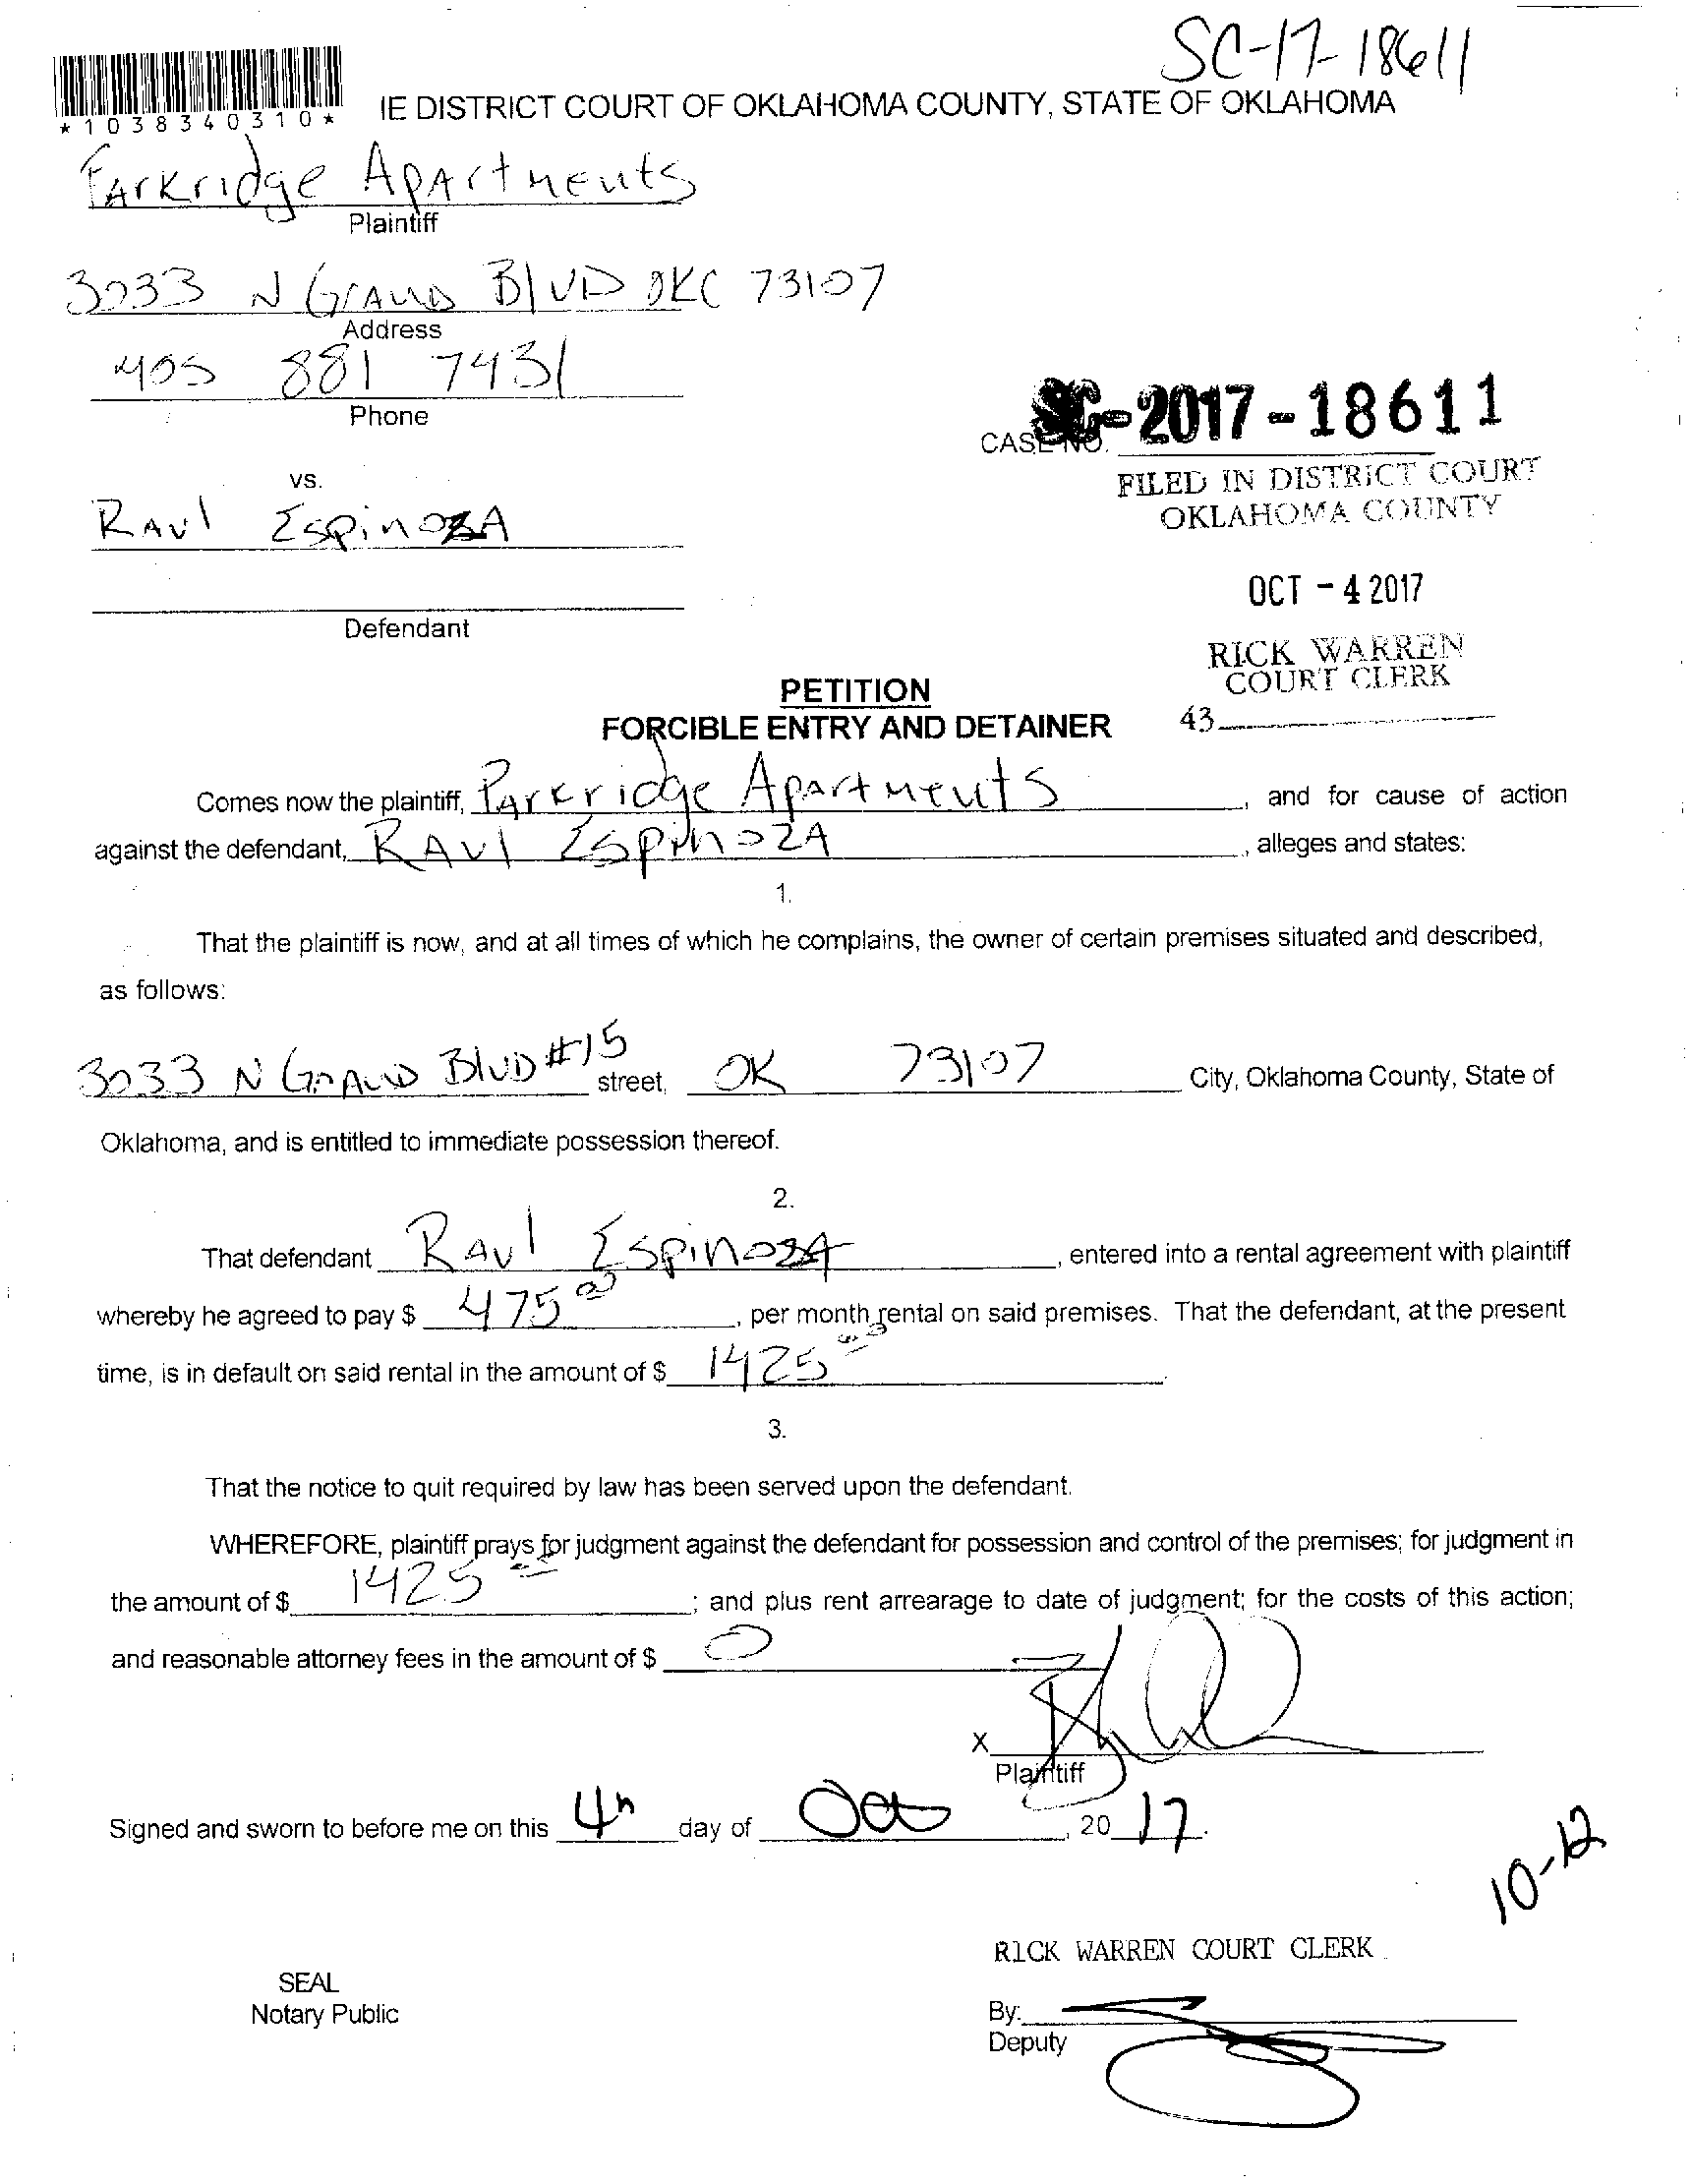 SC-17-18611
*1038340310*
IE DISTRICT COURT OF OKLAHOMA COUNTY, STATE OF OKLAHOMA
Parkridge Apartments
Plaintiff
3033 N Grand Blvd OKC 73107
Address
405 881 7431
Phone
SC-2017-18611
CASE NO.
FILED IN DISTRICT COURT
OKLAHOMA COUNTY
vs.
Raul Espinoza
OCT - 4 2017
Defendant
RICK WARREN
COURT CLERK
43
PETITION
FORCIBLE ENTRY AND DETAINER
Comes now the plaintiff, Parkridge Apartments, and for cause of action
against the defendant, Raul Espinoza, alleges and states:
1.
That the plaintiff is now, and at all times of which he complains, the owner of certain premises situated and described,
as follows:
3033 N Grand Blvd #15 street, OK 73107 City, Oklahoma County, State of
Oklahoma, and is entitled to immediate possession thereof.
2.
That defendant Raul Espinoza, entered into a rental agreement with plaintiff
whereby he agreed to pay $ 475 00, per month rental on said premises. That the defendant, at the present
time, is in default on said rental in the amount of $ 1425 00
3.
That the notice to quit required by law has been served upon the defendant.
WHEREFORE, plaintiff prays for judgment against the defendant for possession and control of the premises; for judgment in
the amount of $ 1425 00; and plus rent arrearage to date of judgment; for the costs of this action;
and reasonable attorney fees in the amount of $ 0
X
Plaintiff
Signed and sworn to before me on this 4th day of Oct, 20 17.
10-12
RICK WARREN COURT CLERK
SEAL
Notary Public
By:
Deputy